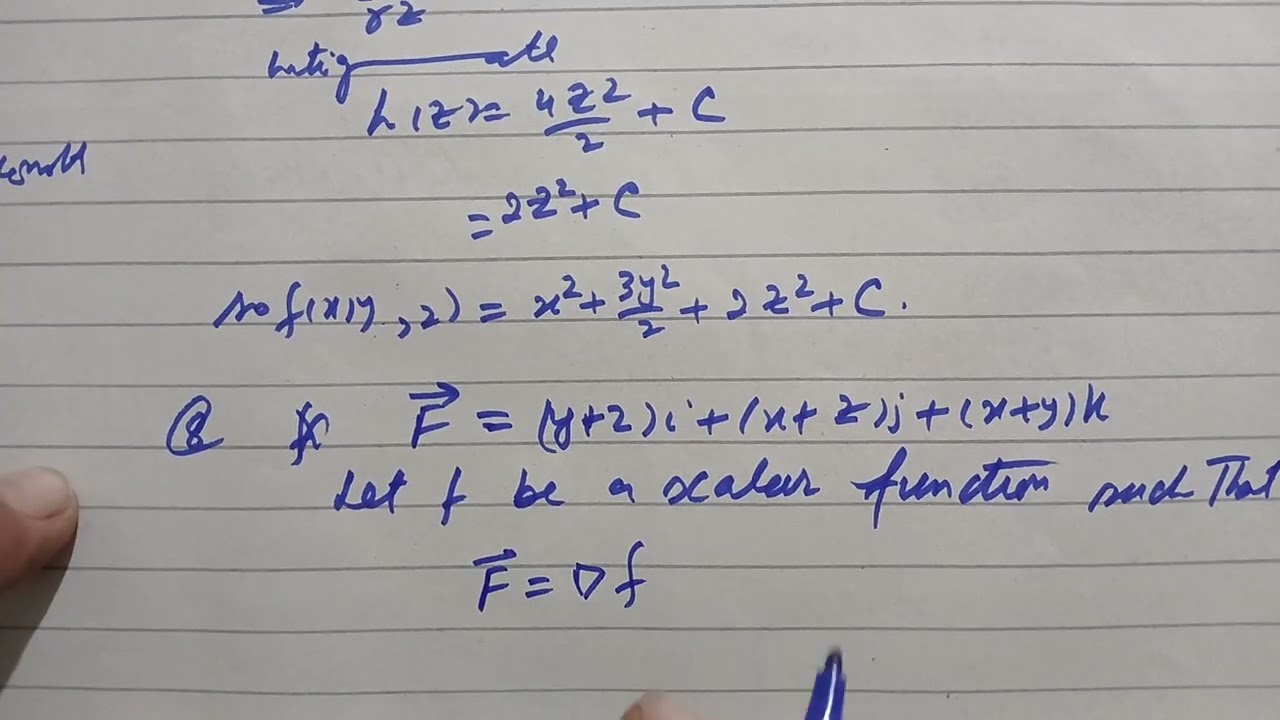 ⇒ ∂z
Integrate
h(z) = 4z²/2 + C
= 2z² + C
so f(x,y,z) = x² + 3y²/2 + 2z² + C.
Q F⃗ = (y+z)i + (x+z)j + (x+y)k
Let f be a scalar function such That
F⃗ = ∇f